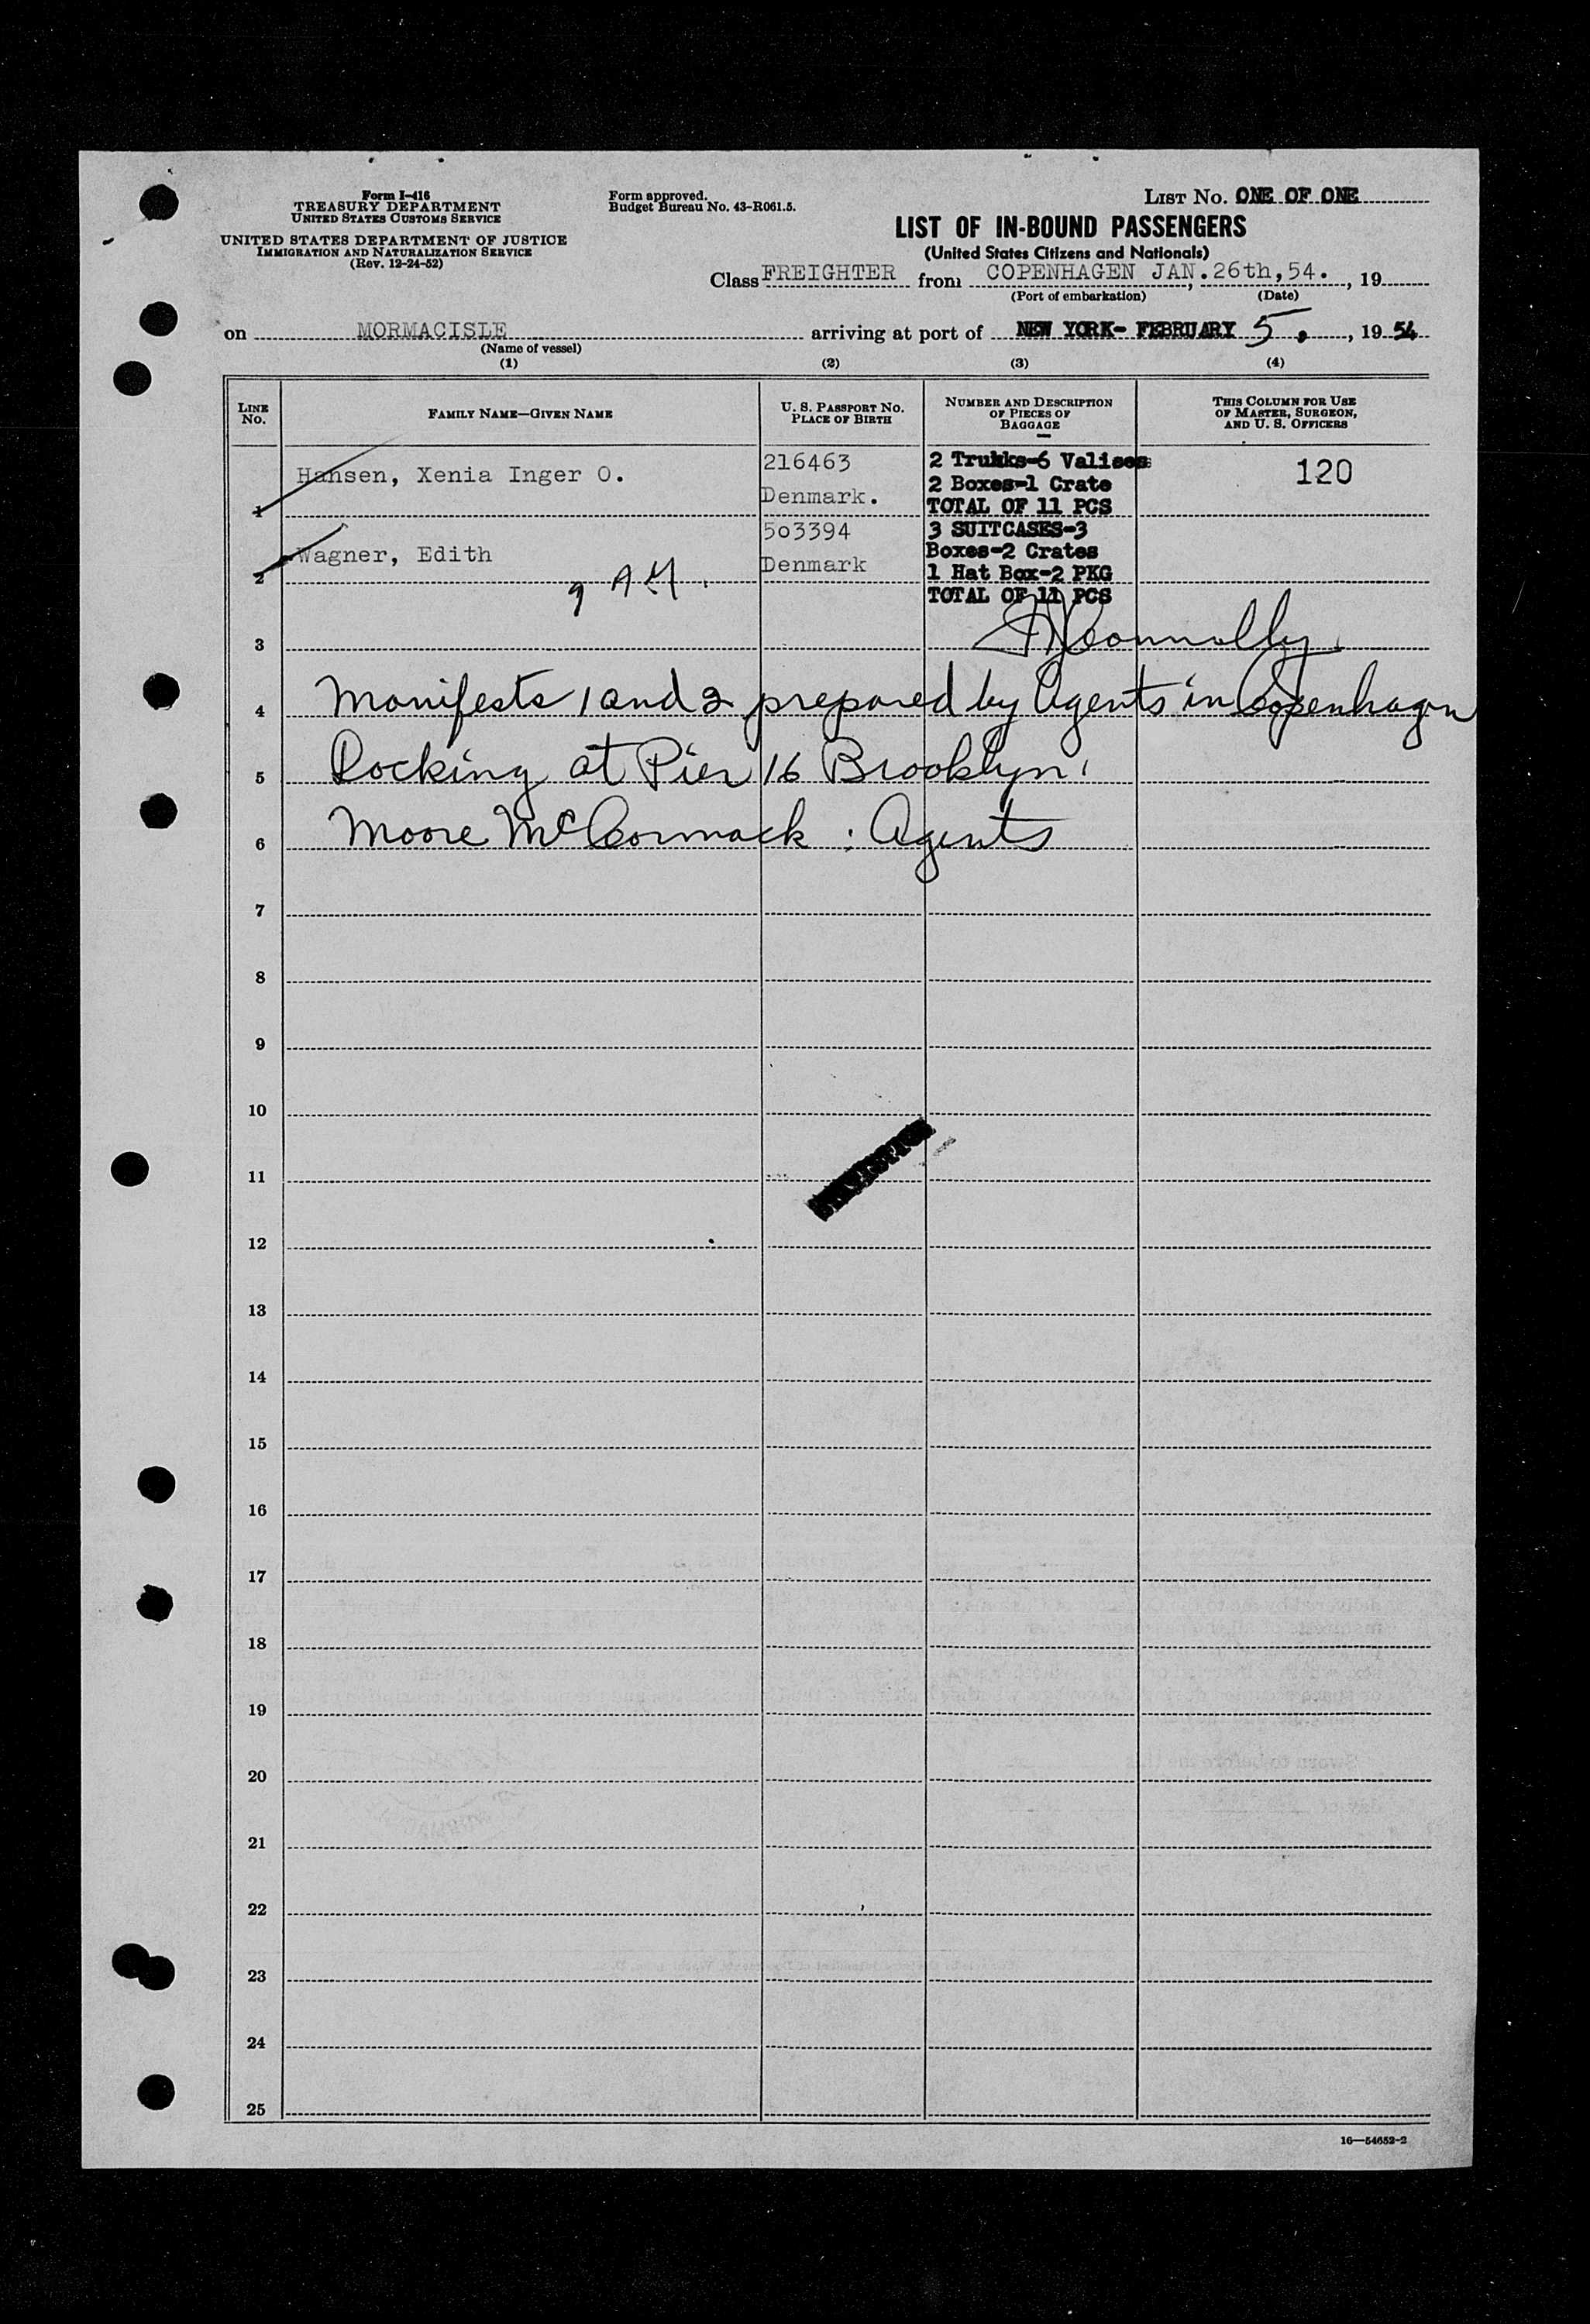 Form I-416
TREASURY DEPARTMENT
UNITED STATES CUSTOMS SERVICE
UNITED STATES DEPARTMENT OF JUSTICE
IMMIGRATION AND NATURALIZATION SERVICE
(Rev. 12-24-52)
Form approved.
Budget Bureau No. 43-R061.5.
LIST No. ONE OF ONE
LIST OF IN-BOUND PASSENGERS
(United States Citizens and Nationals)
Class FREIGHTER from COPENHAGEN JAN. 26th, 54. , 19
(Port of embarkation) (Date)
on MORMACISLE arriving at port of NEW YORK- FEBRUARY 5, , 19 54
(Name of vessel)
(1) (2) (3) (4)
LINE No.
FAMILY NAME—GIVEN NAME
U. S. PASSPORT No.
PLACE OF BIRTH
NUMBER AND DESCRIPTION
OF PIECES OF
BAGGAGE
THIS COLUMN FOR USE
OF MASTER, SURGEON,
AND U. S. OFFICERS
1 Hansen, Xenia Inger O.
216463
Denmark.
2 Trunks-6 Valises
2 Boxes-1 Crate
TOTAL OF 11 PCS
120
2 Wagner, Edith
503394
Denmark
3 SUITCASES-3
Boxes-2 Crates
1 Hat Box-2 PKG
TOTAL OF 11 PCS
9 A.M.
3 Connolly
4 Manifests 1 and 2 prepared by Agents in Copenhagen
5 Docking at Pier 16 Brooklyn.
6 Moore McCormack : Agents
7
8
9
10
11
12
13
14
15
16
17
18
19
20
21
22
23
24
25
16—54652-2